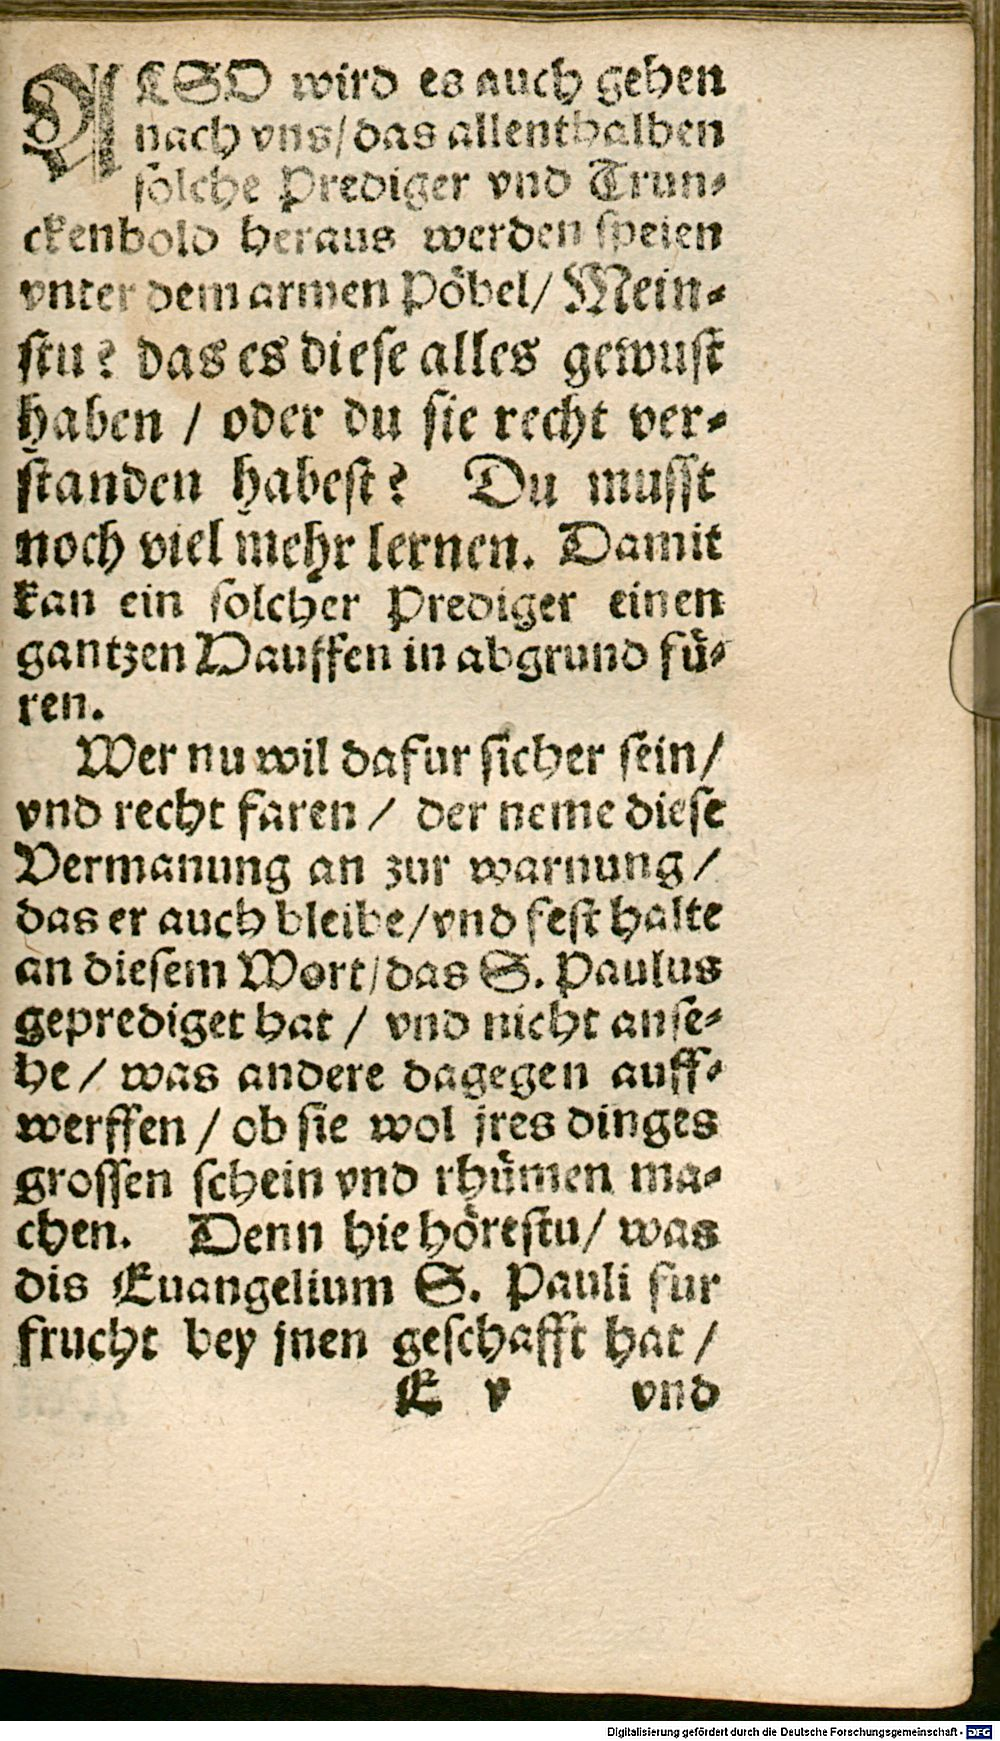 ALSO wird es auch gehen
nach vns/das allenthalben
solche Prediger vnd Trun-
ckenbold heraus werden speien
vnter dem armen Pöbel/ Mein-
stu? das es diese alles gewust
haben / oder du sie recht ver-
standen habest? Du musst
noch viel mehr lernen. Damit
kan ein solcher Prediger einen
gantzen Hauffen in abgrund fü-
ren.
Wer nu wil dafur sicher sein/
vnd recht faren / der neme diese
Vermanung an zur warnung/
das er auch bleibe/vnd fest halte
an diesem Wort/das S. Paulus
geprediget hat / vnd nicht anse-
he / was andere dagegen auff-
werffen / ob sie wol jres dinges
grossen schein vnd rhümen ma-
chen. Denn hie hörestu/ was
dis Euangelium S. Pauli fur
frucht bey jnen geschafft hat/
E v vnd
Digitalisierung gefördert durch die Deutsche Forschungsgemeinschaft - DFG